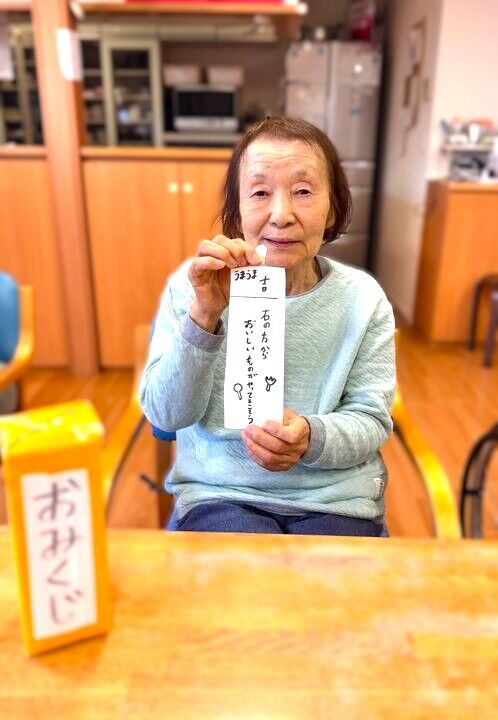 うまうま吉
右の方から
おいしいものがやってきそう
おみくじ